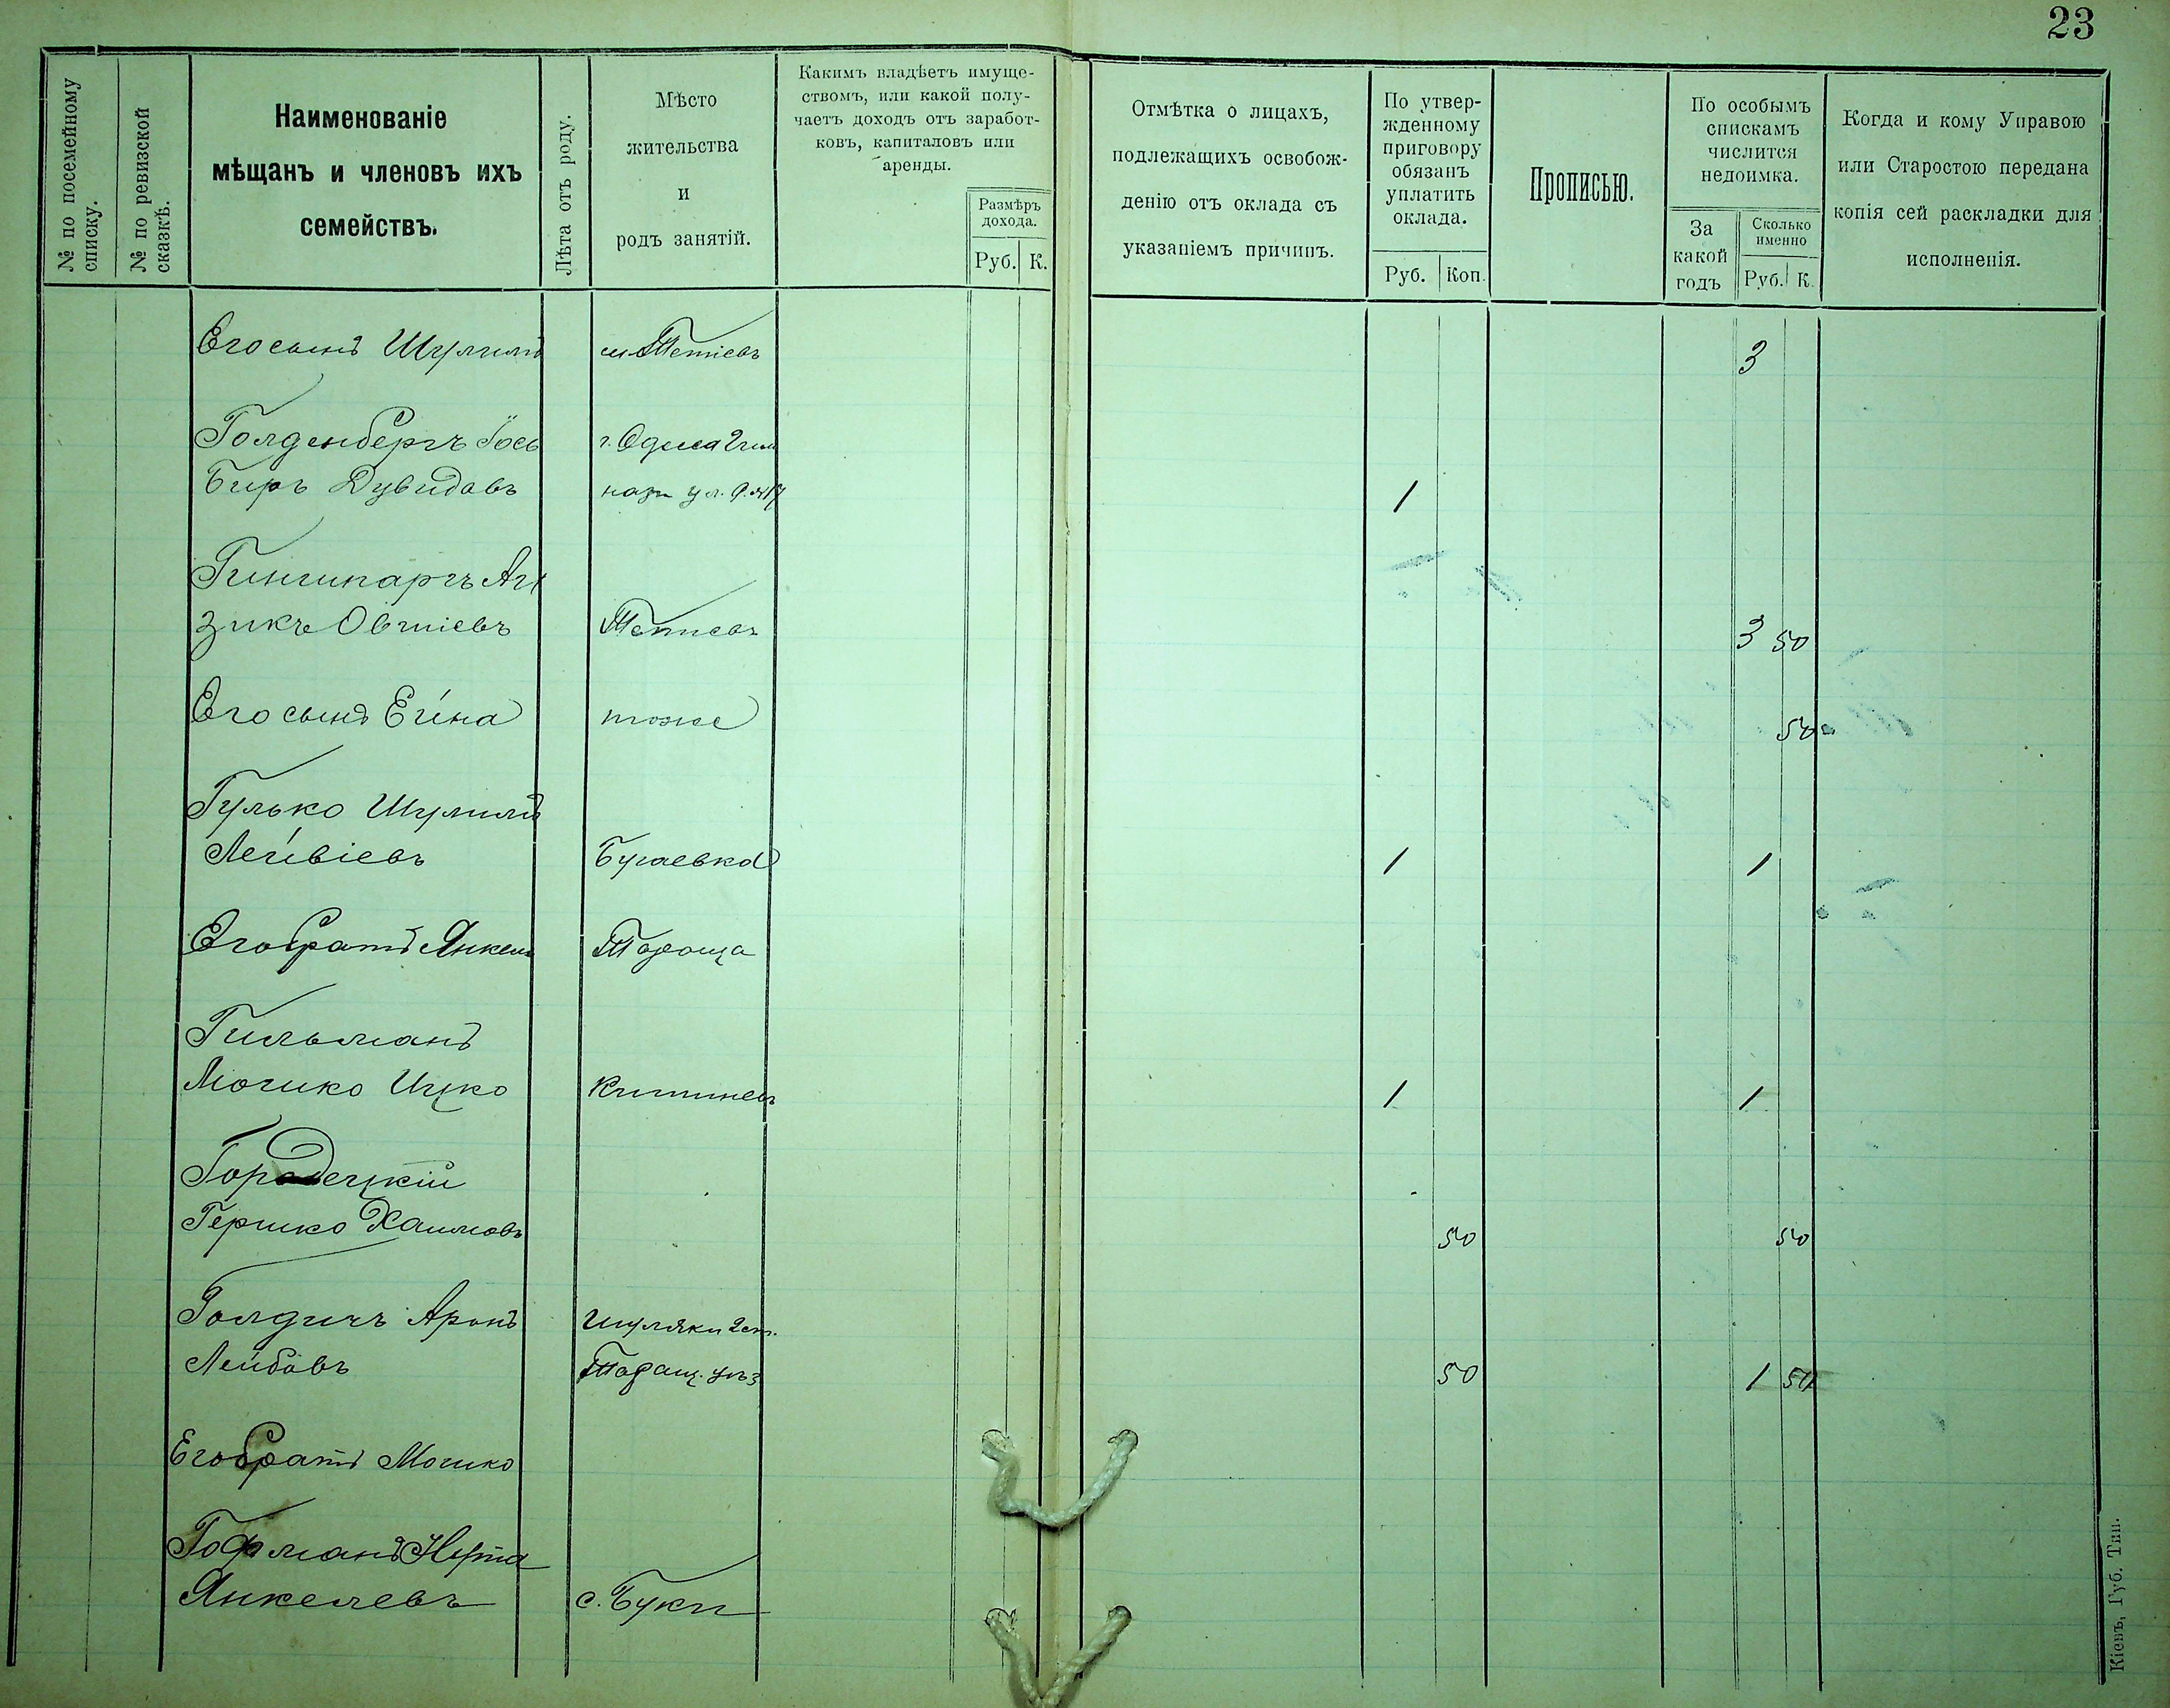 23
№ по посемейному
списку.
№ по ревизской
сказкѣ.
Наименованіе
мѣщанъ и членовъ ихъ
семействъ.
Лѣта отъ роду.
Мѣсто
жительства
и
родъ занятій.
Какимъ владѣетъ имуще-
ствомъ, или какой полу-
чаетъ доходъ отъ заработ-
ковъ, капиталовъ или
аренды.
Размѣръ
дохода.
Руб. К.
Отмѣтка о лицахъ,
подлежащихъ освобож-
денію отъ оклада съ
указаніемъ причинъ.
По утвер-
жденному
приговору
обязанъ
уплатить
оклада.
Руб. Коп.
Прописью.
По особымъ
спискамъ
числится
недоимка.
За
какой
годъ
Сколько
именно
Руб. К.
Когда и кому Управою
или Старостою передана
копія сей раскладки для
исполненія.
Его сынъ Шулимъ м. Тетіевъ 3
Голденбергъ Іось г. Одесса
Беръ Дувидовъ 1
зикъ Овшіевъ Тетиевъ 3 50
Его сынъ Ейна тоже 50
Гулько Шулимъ
Лейвіевъ Бугаевка 1 1
Его братъ Янкель Тараща
Гильманъ
Мошко Ицко Кишиневъ 1 1
Городецкій
Гершко Хаимовъ 50 50
Голдичъ Аронъ Шуляки 2 ст.
Лейбовъ Таращ. уѣз. 50 1 50
Его братъ Мошко
Гофманъ Нута
Янкелевъ с. Буки
Кіевъ, Губ. Тип.